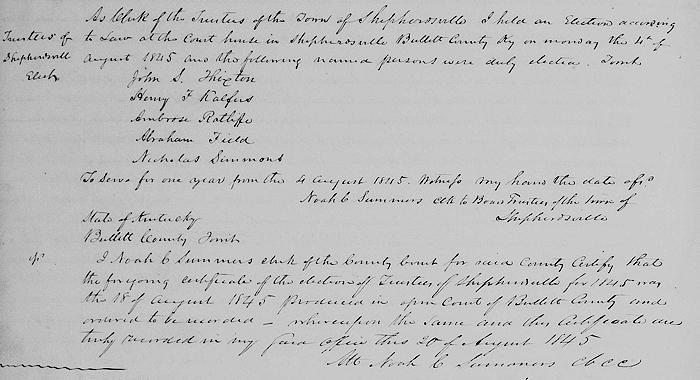 As Clerk of the Trustees of the Town of Shepherdsville I held an Election according
Trustees of
Shepherdsville
Elect
to Law at the Court house in Shepherdsville Bullett County Ky on monday the 4th of
August 1845 and the following named persons were duly elected. Towit
John S. Thixton
Henry F Kalfus
Ambrose Ratliffe
Abraham Field
Nicholas Simmons
To serve for one year from the 4 August 1845. Witness my hand the date afsd
Noah C Summers clk to Board Trustees of the Town of
Shepherdsville
State of Kentucky
Bullett County Towit
I Noah C Summers clerk of the County Court for said County Certify that
the foregoing certificate of the election of Trustees of Shepherdsville for 1845 was
the 18 of August 1845 Produced in open Court of Bullett County and
ordered to be recorded – whereupon the same and this Certificate are
truly recorded in my said office this 20 of August 1845
Att Noah C Summers cbcc